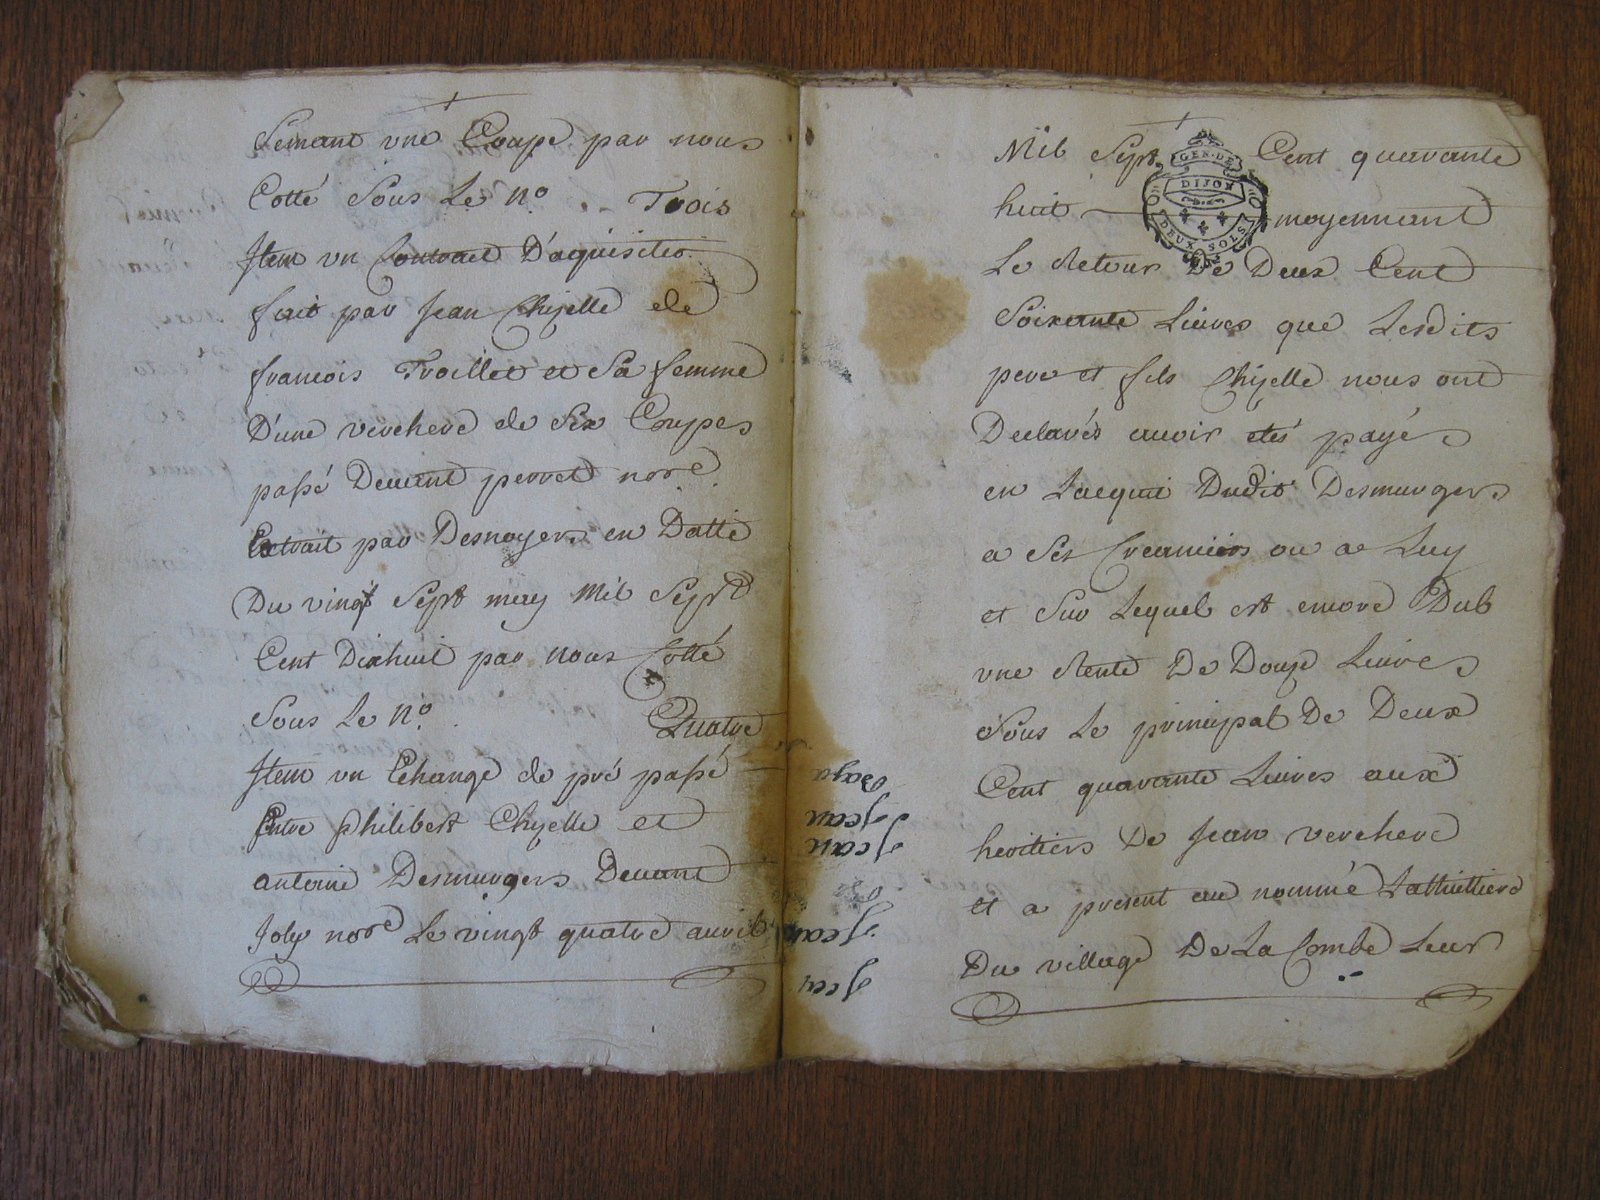 Semant vne Coupe par nous
Cotté Sous Le n.o Trois
Item vn Contract D'aquisitio
fait par Jean Chyelle de
francois Troillet et Sa femme
D'une verchere de Six Coupes
passé Deuant perret nore
Extrait par Desnoyers en Datte
Du vingt Sept may Mil Sept
Cent Dixhuit par nous Cotté
Sous Le n.o Quatre
Item vn Echange de pré passé
Entre philibert Chyelle et
antoine Desmurgers Deuant
Joly nore Le vingt quatre auril
Mil Sept Cent quarante
GEN. DE
DIJON
DEUX SOLS
huit moyennant
Le Retour De Deux Cent
Soixante Liures que Lesdits
pere et fils Chyelle nous ont
Declarés auoir etés payés
en Lacquit Dudit Desmurgers
a Ses Creanciers ou a Luy
et Sur Lequel est encore Dub
vne Rente De Douze Liures
Sous Le principal De Deux
Cent quarante Liures aux
heritiers De Jean verchere
et a present au nommé Lathuilliere
Du village De La Combe Leur
Jean
Jean
Jean